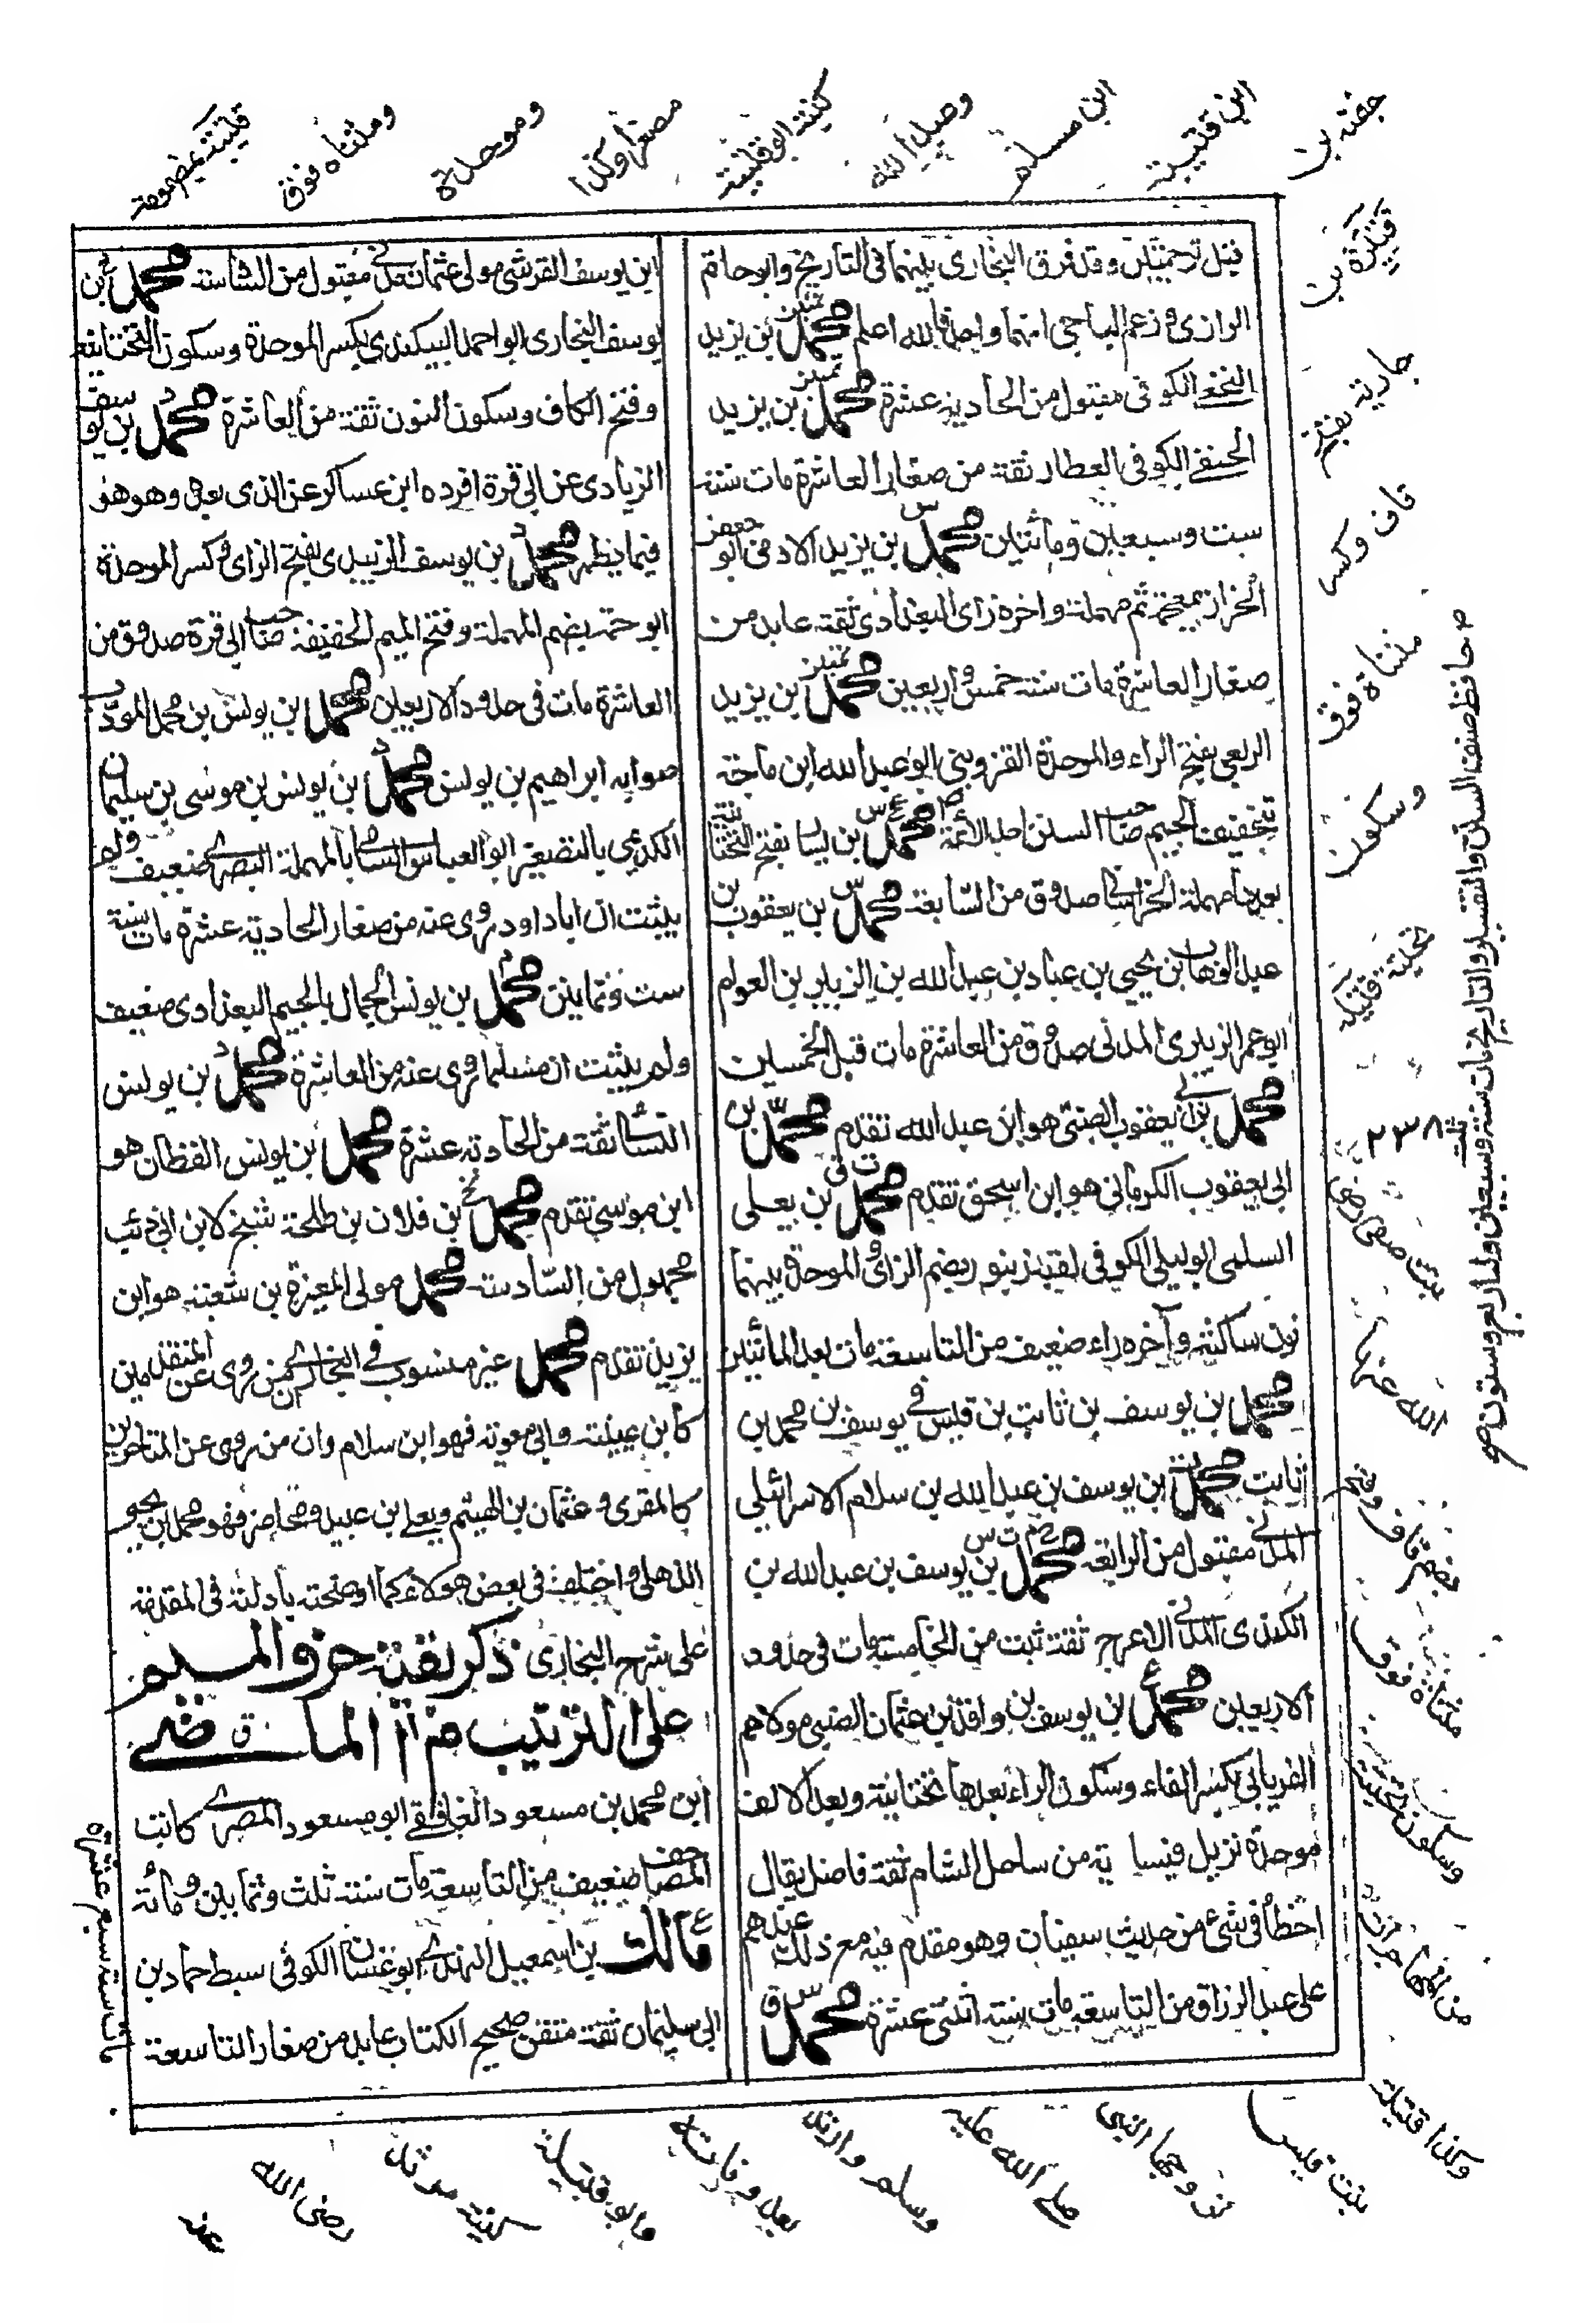 قبل ترجمتين وقد فرق البخاري بينهما في التاريخ وابو حاتم
الرازي وزعم الباجي انهما واحد فالله اعلم محمد بن يزيد
تمييز
النخعي الكوفي مقبول من الحادية عشرة محمد بن يزيد
تمييز
الحنفي الكوفي العطار ثقة من صغار العاشرة مات سنة
ست وسبعين ومائتين محمد بن يزيد الادمي ابو جعفر
س
الخراز بمعجمة ثم مهملة واخره زاى البغدادي ثقة عابد من
صغار العاشرة مات سنة خمس واربعين محمد بن يزيد
تمييز
الربعي بفتح الراء والموحدة القزويني ابو عبد الله ابن ماجة
بتخفيف الجيم صاحب السنن احد الائمة محمد بن يسار بفتح التحتانية
بعدها مهملة الخراساني صدوق من السابعة محمد بن يعقوب بن
س
عبد الوهاب بن يحيي بن عباد بن عبد الله بن الزبير بن العوام
ابو عمر الزبيري المدني صدوق من العاشرة مات قبل الخمسين
محمد بن ابي يعقوب الضبي هو ابن عبد الله تقدم محمد بن
ابي يعقوب الكرماني هو ابن اسحق تقدم محمد بن يعلى
ت ق
السلمي ابو ليلى الكوفي لقبه زنبور بضم الزاى والموحدة بينهما
نون ساكنة وآخره راء ضعيف من التاسعة مات بعد المائتين
محمد بن يوسف بن ثابت بن قيس في يوسف بن محمد بن
ثابت محمد بن يوسف بن عبد الله بن سلام الاسرائيلي
ت
المدني مقبول من الرابعة محمد بن يوسف بن عبد الله بن
خ م ت س
الكندي المدني الاعرج ثقة ثبت من الخامسة مات في حدود
الاربعين محمد بن يوسف بن واقد بن عثمان الضبي مولاهم
ع
الفريابي بكسر الفاء وسكون الراء بعدها تحتانية وبعد الالف
موحدة نزيل قيسارية من ساحل الشام ثقة فاضل يقال
اخطأ في شئ من حديث سفيان وهو مقدم فيه مع ذلك عندهم
على عبد الرزاق من التاسعة مات سنة اثنتي عشرة محمد
س ق
ابن يوسف القرشي مولى عثمان مدني مقبول من السادسة محمد بن
يوسف البخاري ابو احمد البيكندي بكسر الموحدة وسكون التحتانية
وفتح الكاف وسكون النون ثقة من العاشرة محمد بن يوسف
الزيادي عن ابي قرة افرده ابن عساكر عن الذي بعده وهو هو
فيما يظهر محمد بن يوسف الزبيدي بفتح الزاى وكسر الموحدة
ابو حمة بضم المهملة وفتح الميم الخفيفة صاحب ابي قرة صدوق من
العاشرة مات في حدود الاربعين محمد بن يونس بن محمد المودب
صوابه ابراهيم بن يونس محمد بن يونس بن موسى بن سليمان
الكديمي بالتصغير ابو العباس السامي بالمهملة البصري ضعيف ولم
يثبت ان ابا داود روى عنه من صغار الحادية عشرة مات سنة
ست وثمانين محمد بن يونس الجمال بالجيم البغدادي ضعيف
ولم يثبت ان مسلما روى عنه من العاشرة محمد بن يونس
النسائي ثقة من الحادية عشرة محمد بن يونس القطان هو
ابن موسى تقدم محمد بن فلان بن طلحة شيخ لابن ابي ذئب
مجهول من السادسة محمد مولى المغيرة بن شعبة هو ابن
يزيد تقدم محمد غير منسوب في البخاري ان روى عن المتقدمين
كابن عيينة وابي معوية فهو ابن سلام وان من روى عن المتاخرين
كالمقرى وعثمان بن الهيثم ويعلى بن عبيد ومحاضر فهو محمد بن يحيى
الذهلي واختلف في بعض هولاء كما اوضحته بأدلته في المقدمة
على شرح البخاري ذكر بقية حرف الميم
على الترتيب م ا الماضي
ق
ابن محمد بن مسعود الغافقي ابو مسعود المصري كاتب
المصاحف ضعيف من التاسعة مات سنة ثلث وثمانين ومائة
ع مالك بن اسمعيل النهدي ابو غسان الكوفي سبط حماد بن
ابي سليمان ثقة متقن صحيح الكتاب عابد من صغار التاسعة
مات سنة سبع عشرة
ابن قتيبة
ابن مسلم
كنيته ابو قتيبة
مصغرا وكذا
وموحدة
ومثناة فوق
قتيبة بمضمومة
قتيرة بن
جارية بفتح
قاف وكسر
مثناة فوق
وسكون
تحتية
حافظ صنف السنن والتفسير والتاريخ مات سنة وسبعين وله اربع وستون
بنت صيفي رضي
الله عنها
بضم قاف وفتح
مثناة فوق
وسكون تحتية
من المهاجرات
وكذا قتيلة
بنت قيس
تزوجها النبي
صلى الله عليه
وسلم وارتدت
بعد وفاته
وابو قتيلة
كنية مرثد
رضي الله
عنه